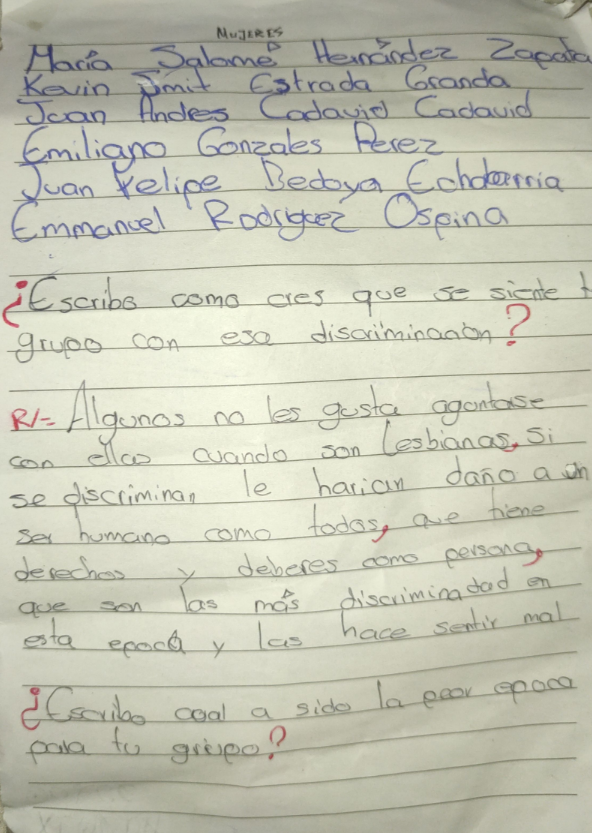 MUJERES
María Salomé Hernández Zapata
Kevin Smit Estrada Granda
Juan Andres Cadavid Cadavid
Emiliano Gonzales Perez
Juan Felipe Bedoya Echaverria
Emmanuel Rodriguez Ospina
¿Escribe como cres que se siente t
grupo con esa discriminación?
R/= Algunos no les gusta agontarse
con ellas cuando son lesbianas, si
se discriminan le harian daño a un
ser humano como todas, que tiene
derechos y deberes como persona,
que son las más discriminadad en
esta epoca y las hace sentir mal
¿Escribe cual a sido la peor epoca
para tu grupo?